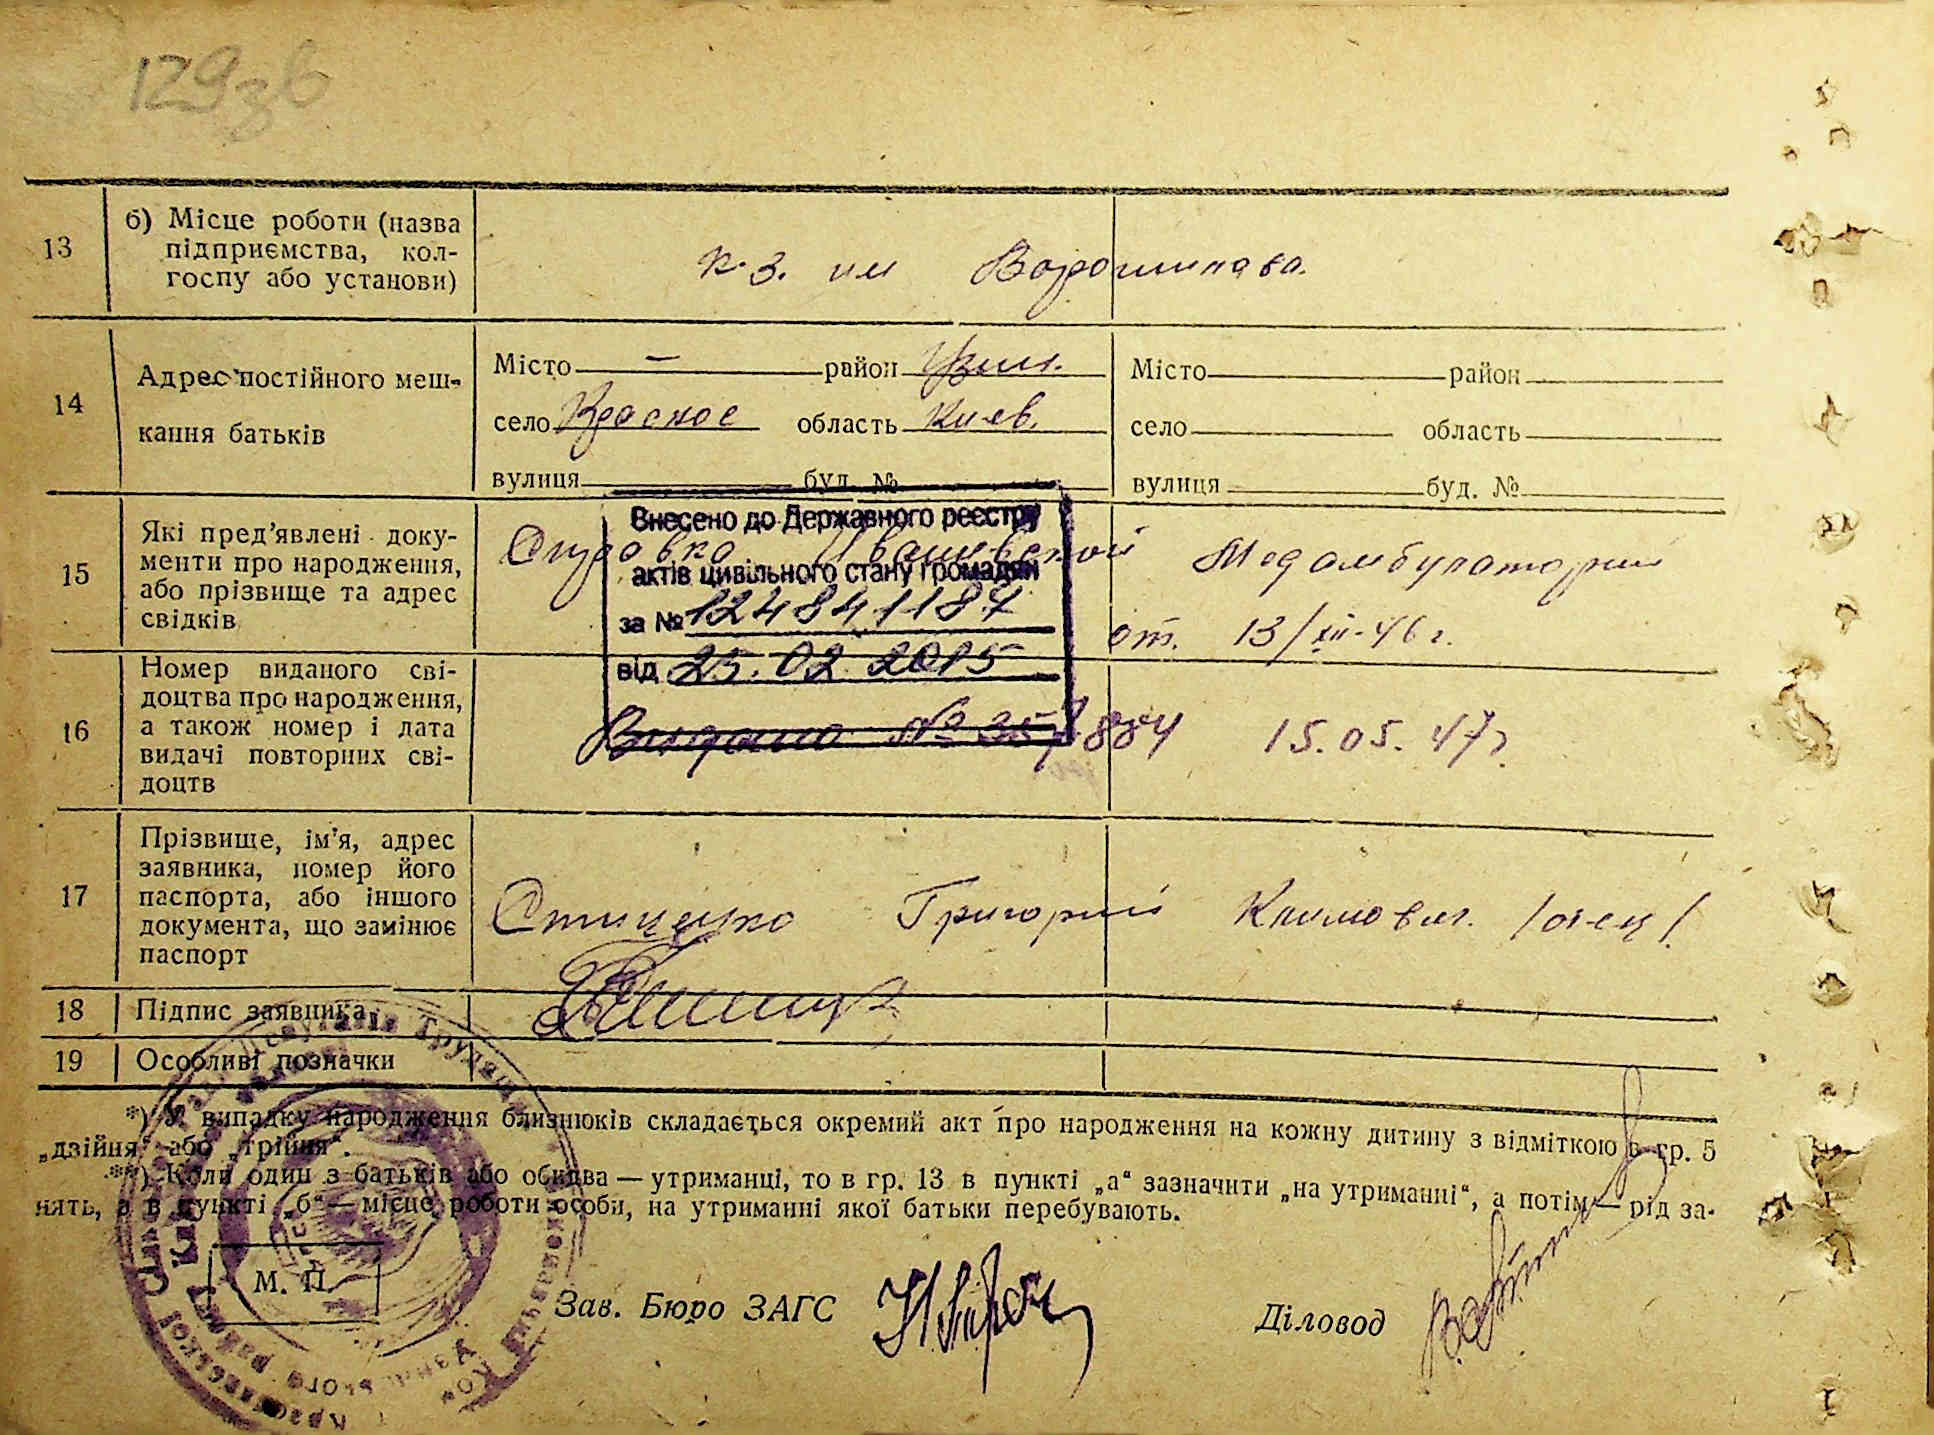 129зв
13
б) Місце роботи (назва
підприємства, кол-
госпу або установи)
к-з. им Ворошилова.
14
Адрес постійного меш-
кання батьків
Місто — район
село Красное область Киев.
вулиця буд. №
Місто район
село область
вулиця буд. №
15
Які пред’явлені доку-
менти про народження,
або прізвище та адрес
свідків
Медамбулаторий
от. 13/XII-46 г.
Внесено до Державного реєстру
актів цивільного стану громадян
за № 124841187
від 25.02.2015
16
Номер виданого сві-
доцтва про народження,
а також номер і дата
видачі повторних сві-
доцтв
Видано № 884 15.05.47г
17
Прізвище, ім’я, адрес
заявника, номер його
паспорта, або іншого
документа, що замінює
паспорт
Григорий Климович /отец/
18
Підпис заявника
19
Особливі позначки
*) У випадку народження близнюків складається окремий акт про народження на кожну дитину з відміткою в гр. 5
„двійня“ або „трійня“.
**) Коли один з батьків або обидва — утриманці, то в гр. 13 в пункті „а“ зазначити „на утриманні“, а потім — рід за-
нять, а в пункті „б“ — місце роботи особи, на утриманні якої батьки перебувають.
М. П.
Зав. Бюро ЗАГС
Діловод